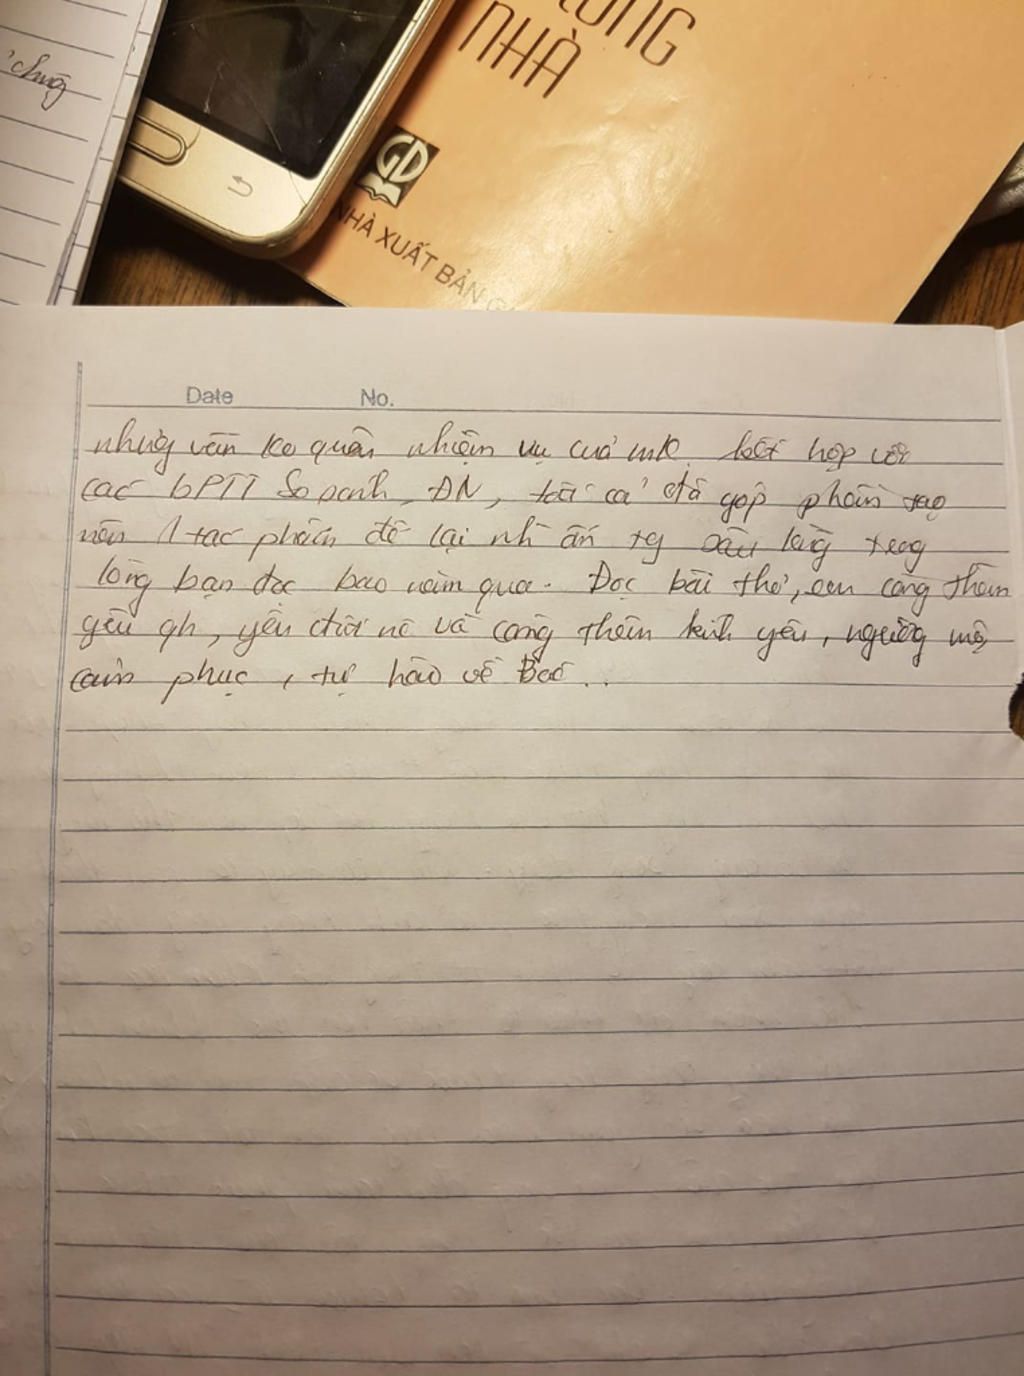 chug
LÒNG
NHÀ
GD
NHÀ XUẤT BẢN G
Date No.
nhưg vẫn ko quên nhiệm vụ của mk. kết hợp với
các bPTT So sanh, ĐN, tất cả đã góp phần tạo
nên 1 tác phẩm để lại nh ấn tg sâu lắg trog
lòng bạn đọc bao năm qua. Đọc bài thơ, em càng thêm
yêu qh, yêu đất nc và càng thêm kính yêu, ngưỡng mộ,
cảm phục, tự hào về Bác..